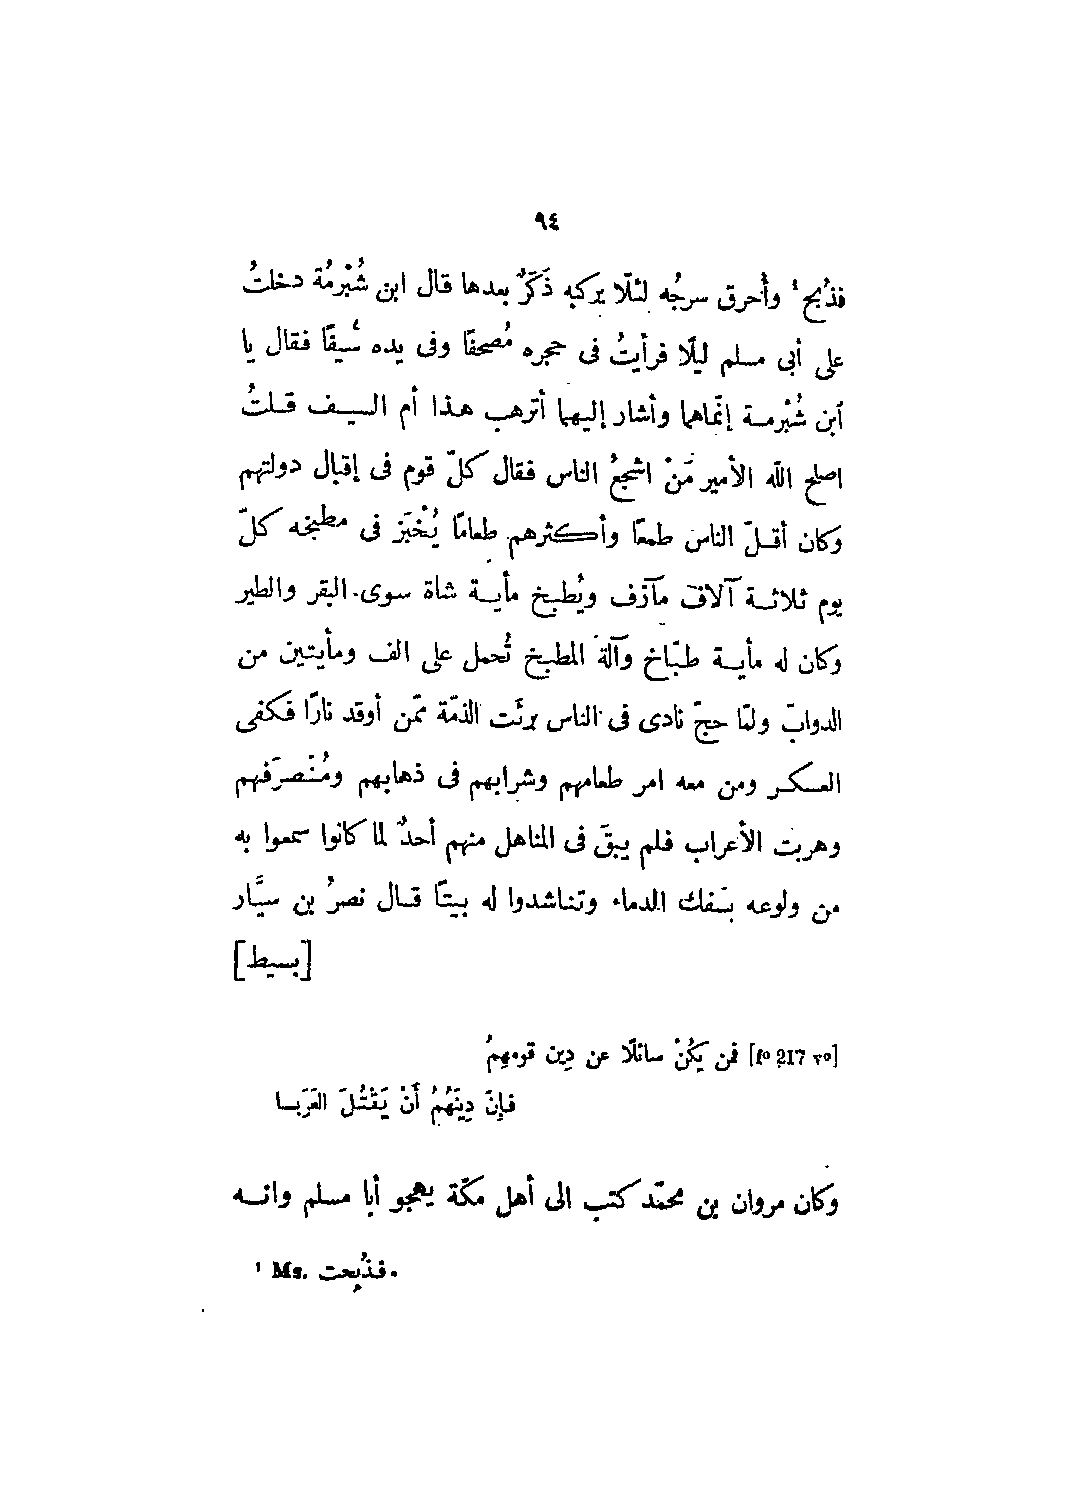 ٩٤
فذُبح ¹ وأُحرق سرجُه لئلّا يركبه ذَكَرٌ بعدها قال ابن شُبْرمُة دخلتُ
على أبى مسلم ليلًا فرأيتُ فى حجره مُصحفًا وفى يده سَيفًا فقال يا
ابن شُبْرمـة إنّماهما وأشار إليهما أترهب هذا أم السيـف قـلتُ
اصلح الله الأمير مَنْ اشجعُ الناس فقال كلّ قوم فى إقبال دولتهم
وكان أقـلّ الناس طمعًا وأكثرهم طعامًا يُخْبَز فى مطبخه كلّ
يوم ثلاثـة آلاف مآزف ويُطبـخ مأيـة شاة سوى البقر والطير
وكان له مأيـة طبّاخ وآلة المطبخ تُحمل على الف ومأيتين من
الدوابّ ولمّا حجّ نادى فى الناس برئت الذمّة ممّن أوقد نارًا فكفى
العسكر ومن معه امر طعامهم وشرابهم فى ذهابهم ومُنْصرَفهم
وهربت الأعراب فلم يبقَ فى المناهل منهم أحدٌ لما كانوا سمعوا به
من ولوعه بسفك الدماء وتناشدوا له بيتًا قـال نصرُ بن سيَّار
[بسيط]
[fº 217 vº] فمن يكُنْ سائلًا عن دِين قومهِمُ
فإنّ دِينَهُمُ أَنْ يَقْتُلَ العَرَبـا
وكان مروان بن محمّد كتب الى أهل مكّة يهجو أبا مسلم وانـه
¹ Ms. فذُبِحت.